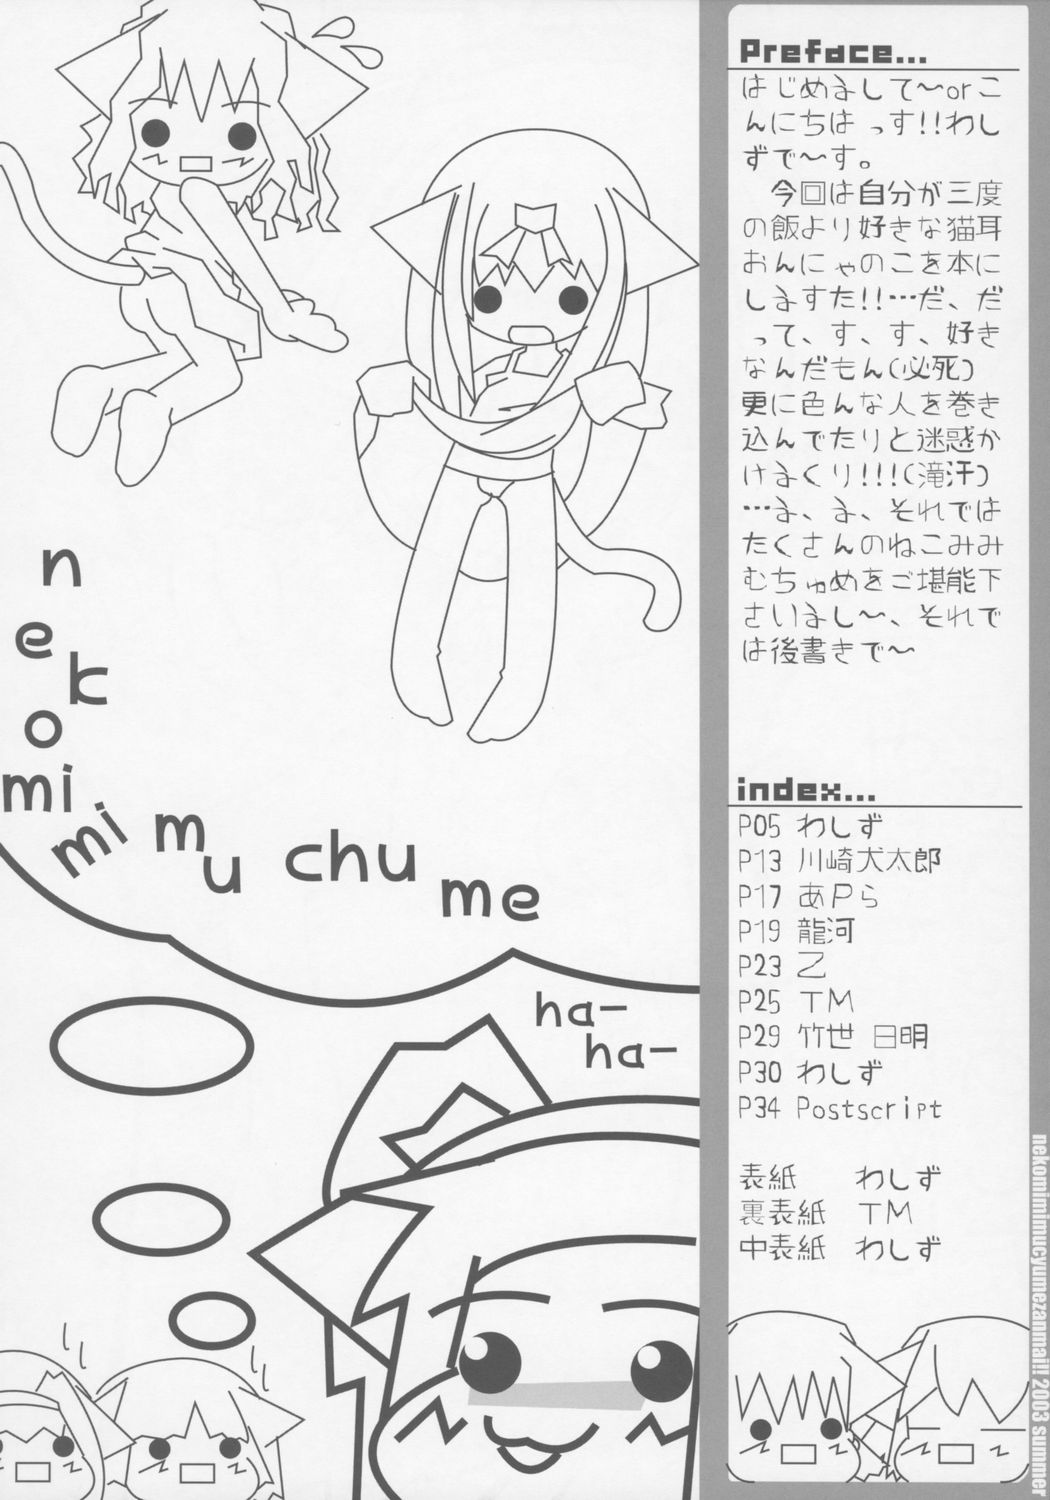 Preface...
はじめまして～orこ
んにちは っす!!わし
ずで～す。
今回は自分が三度
の飯より好きな猫耳
おんにゃのこを本に
しますた!!…だ、だ
って、す、す、好き
なんだもん(必死)
更に色んな人を巻き
込んでたりと迷惑か
けまくり!!!(滝汗)
…ま、ま、それでは
たくさんのねこみみ
むちゅめをご堪能下
さいまし～、それで
は後書きで～
nekomimi mi mu chu me
ha-
ha-
index...
P05 わしず
P13 川崎犬太郎
P17 あPら
P19 龍河
P23 乙
P25 TM
P29 竹世 日明
P30 わしず
P34 Postscript
表紙 わしず
裏表紙 TM
中表紙 わしず
nekomimimucyumezanmai!! 2003 summer